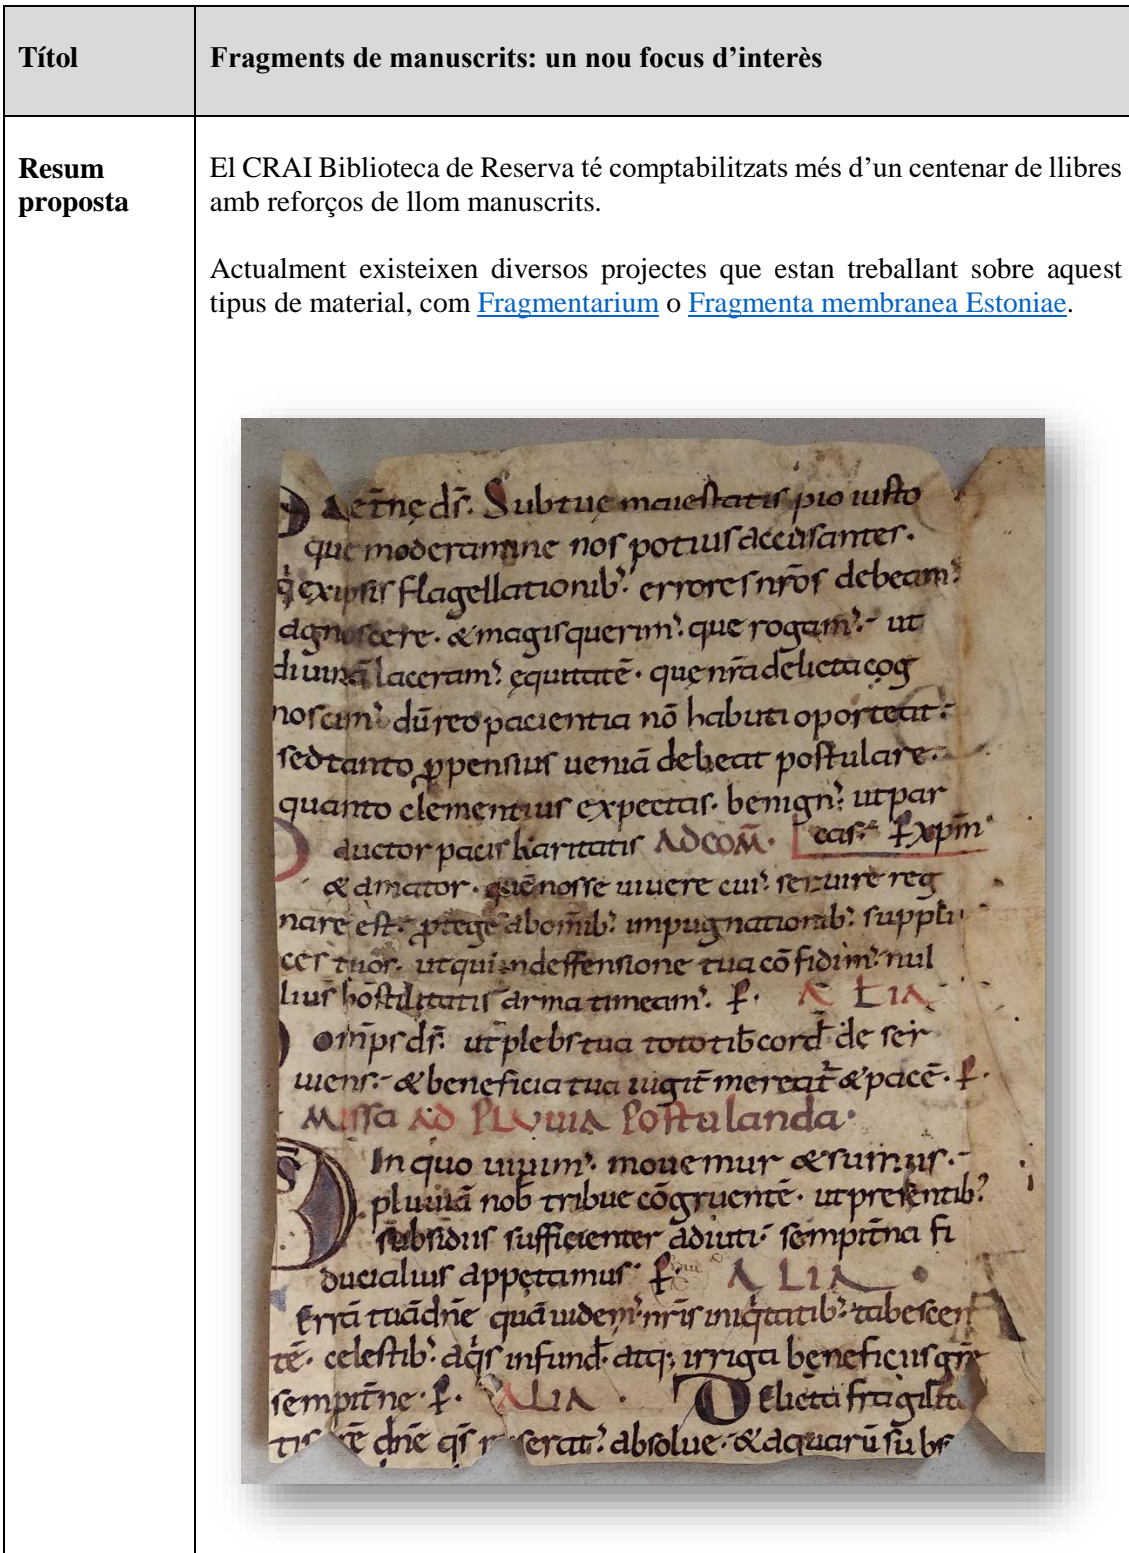 Títol
Fragments de manuscrits: un nou focus d’interès
Resum
proposta
El CRAI Biblioteca de Reserva té comptabilitzats més d’un centenar de llibres
amb reforços de llom manuscrits.
Actualment existeixen diversos projectes que estan treballant sobre aquest
tipus de material, com Fragmentarium o Fragmenta membranea Estoniae.
Aet̄nę ds̄. Subtuę maiestatis pio iusto
que moderamine nos potius accusantes.
flagellationib: errores nr̄os debeam:
agnoscere. & magis querim: que rogam: ut
diuinā laceram: ęquitatē. quę nr̄a delicta cog
noscim: dū reo pacientia nō habuti oporteat:
sed tanto ꝓpensius ueniā debeat postulare.
quanto clementius expectas. benign: ut par
ductor pacis karitatis AD COM̄. cas:
& amator. quē nosse uiuere cui: seruire reg
nare est: ꝓtege abom̄ib: impugnationib: suppli
ces tuos. ut qui indeffensione tua cōfidim: nul
lius hostilitatis arma timeam: ALIA
omp̄s ds̄. ut plebs tua toto tib cord de ser
uiens: & beneficia tua iugit̄ mereat̄ & pacē.
Missa AD PLuuiA Postulanda.
In quo uiuim: mouemur & sumus.
pluuiā nob tribue cōgruentē. ut presentib:
subsidiis sufficienter adiuti: sempit̄na fi
ducialius appetamus: ALIA
Errā tuā dn̄e quā uidem: nr̄is iniqitatib: tabescen
tē. celestib: aqis infund. atq; irriga beneficiis grē
sempit̄ne. ALIA. Delicta fragilita
dn̄e qs̄ absolue. & aquarū subs